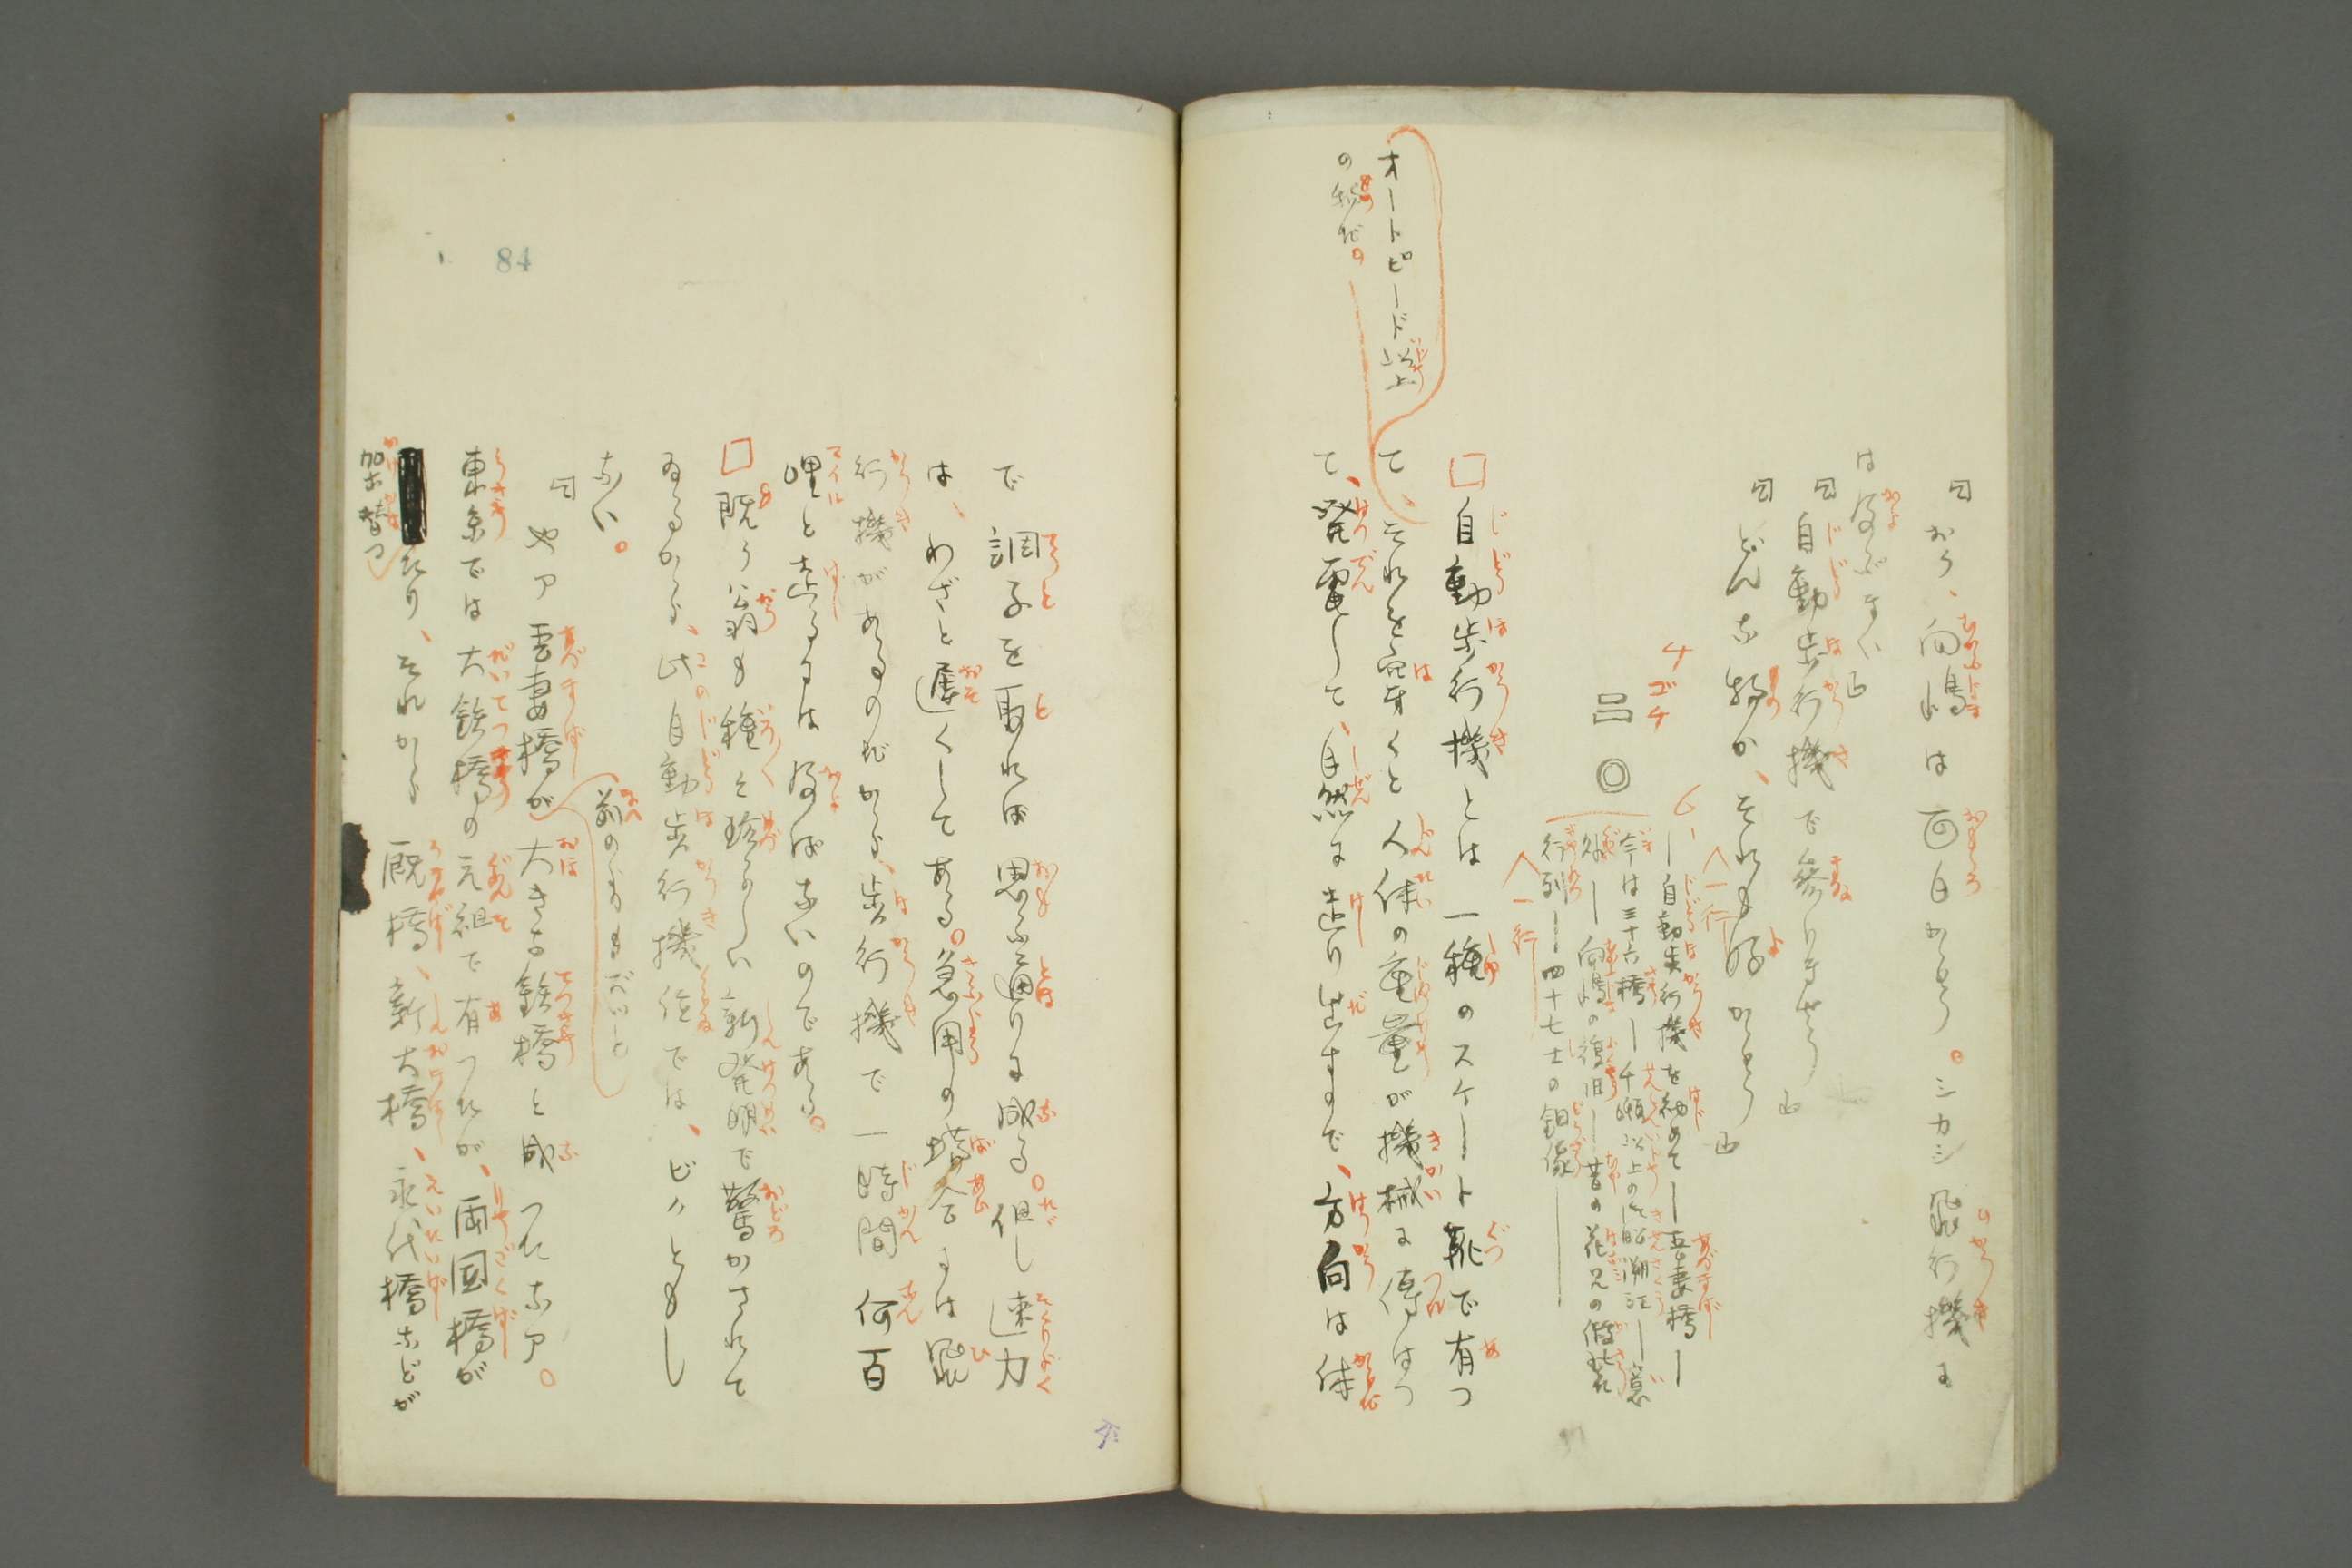 「おう、向嶋は面白からう。シカシ飛行機ま
は及ぶまい」
「自動歩行機で参りませう」
「どんな物か、それも好からう」
四ゴチ
呂 ◎
6ハ
一行
―自動歩行機を初めて―吾妻橋―
今は三十六橋―千噸以上の―溯江―意
外―向嶋の復旧―昔の花見の仮装
行列―四十七士の銅像―
一行
□自動歩行機とは一種のスケート靴で有つ
て、それを穿くと人体の重量が機械に傳はつ
て、発電して、自然に走り出すので、方向は体
オートピード以上
の物だ。
84
で調子を取れば思ふ通りに成る。但し速力
は、わざと遅くしてある。急用の場合には飛
行機があるのだから、歩行機で一時間何百
哩と走るには及ばないのである。
□既う翁も種々珍らしい新発明で驚かされて
ゐるから、此自動歩行機位では、ビクともし
ない。
「やア吾妻橋が大きな鉄橋と成つたなア。
前のもまだいと
東京では大鉄橋の元祖で有つたが、両国橋が
架替つ
たり、それから厩橋、新大橋、永代橋などが